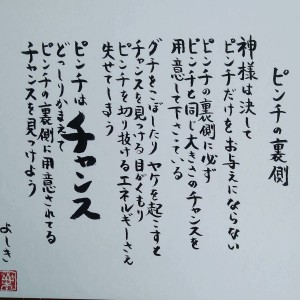 ピンチの裏側
神様は決して
ピンチだけをお与えにならない
ピンチの裏側に必ず
ピンチと同じ大きさのチャンスを
用意して下さっている
グチをこぼしたりヤケを起こすと
チャンスを見つける目がくもり
ピンチを切り抜けるエネルギーさえ
失せてしまう
ピンチはチャンス
どっしりかまえて
ピンチの裏側に用意されてる
チャンスを見つけよう
よしき